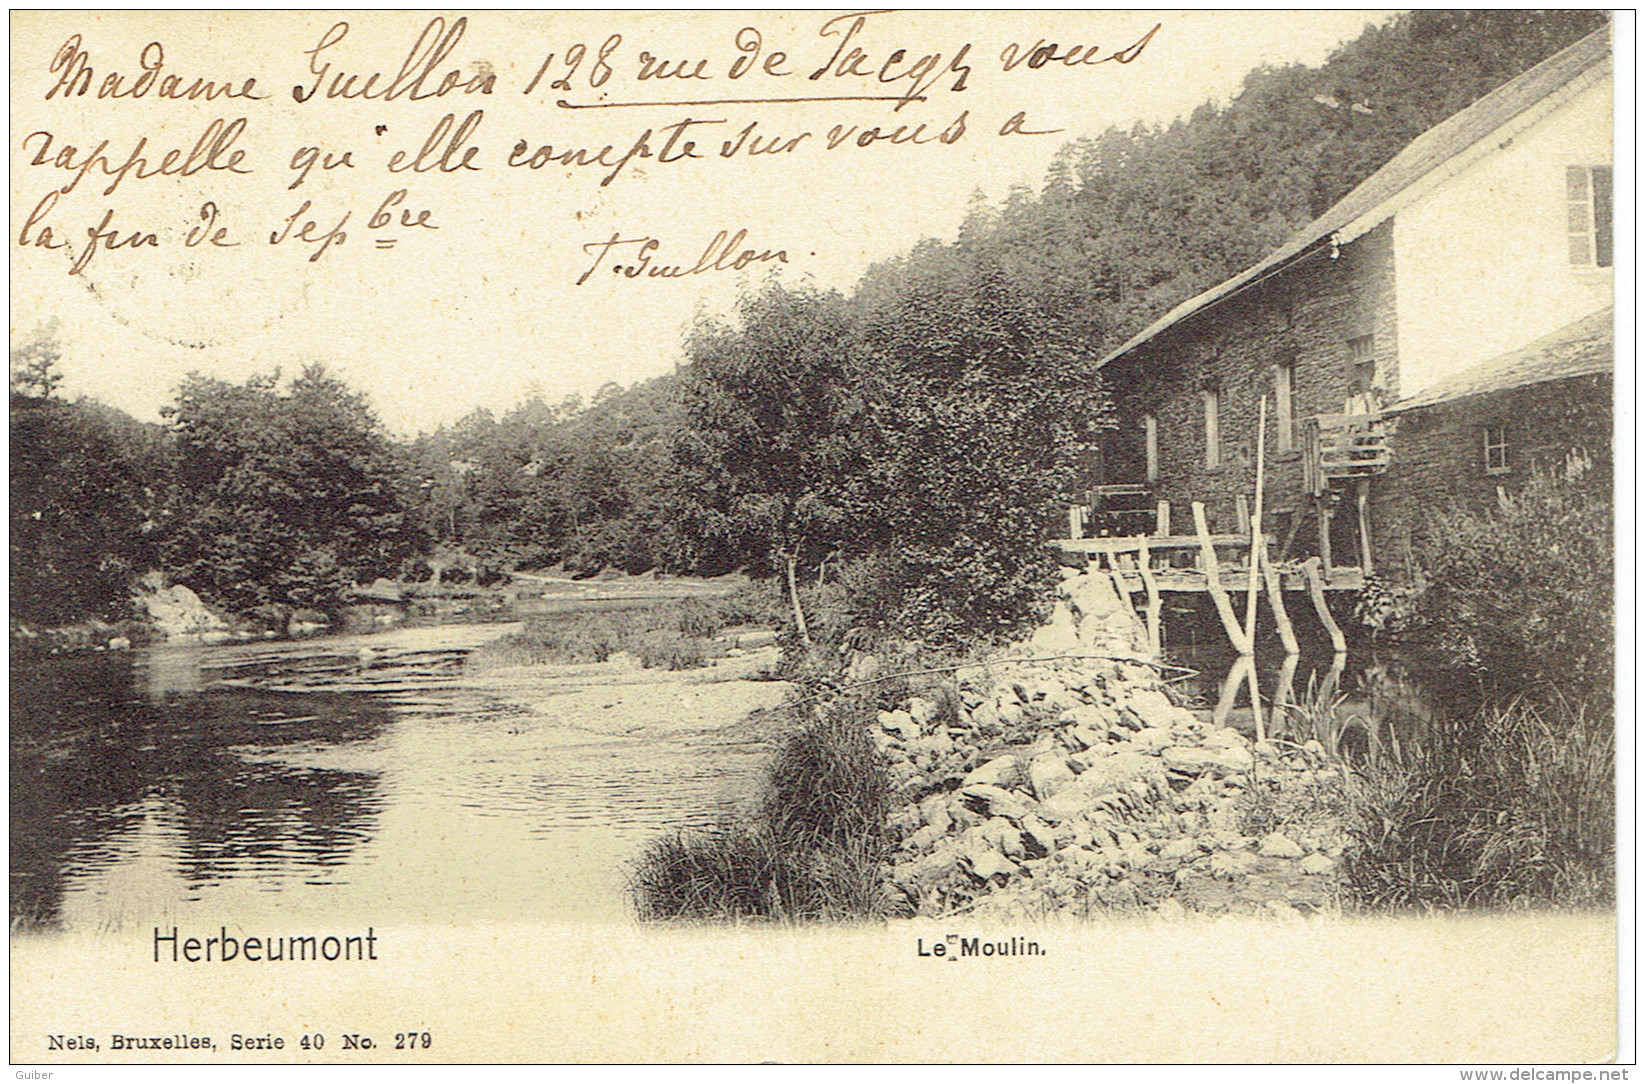 Madame Guellon 128 rue de Tacqz vous
rappelle qu'elle compte sur vous a
la fin de sepbre
T. Guellon.
Herbeumont
Le Moulin.
Nels, Bruxelles, Serie 40 No. 279
Guiber
www.delcampe.net